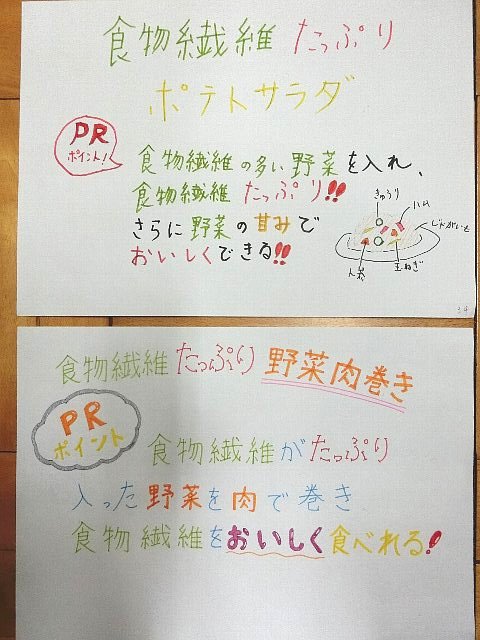 食物繊維たっぷり
ポテトサラダ
PR
ポイント!
食物繊維の多い野菜を入れ、
食物繊維たっぷり!!
さらに野菜の甘みで
おいしくできる!!
きゅうり
ハム
じゃがいも
人参
玉ねぎ
食物繊維たっぷり野菜肉巻き
PR
ポイント
食物繊維がたっぷり
入った野菜を肉で巻き
食物繊維をおいしく食べれる!